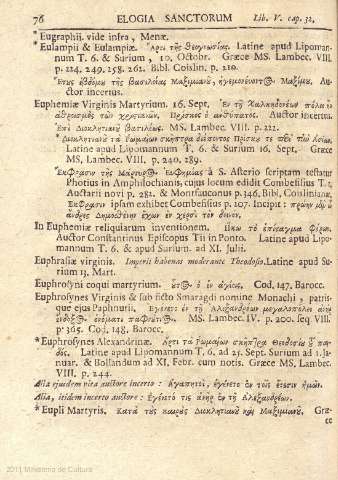 76 ELOGIA SANCTORUM Lib. V. cap. 32.
* Eugraphii. vide infra, Menæ.
* Eulampii & Eulampiæ. Ἄρτι τῆς Θεογνωσίας. Latine apud Lipoman-
num T. 6. & Surium, 10. Octobr. Græce MS. Lambec. VIII.
p. 124. 249. 258. 261. Bibl. Coislin. p. 221.
Ἔτους ἑβδόμου τῆς βασιλείας Μαξιμιανοῦ, Μαξίμου. Au-
ctor incertus.
Euphemiæ Virginis Martyrium. 16. Sept. Ἐν τῇ Χαλκηδονέων πόλει
ἀθροισμὸς τῶν χριστιανῶν, Πρίσκος ὁ ἀνθύπατος. Auctor incertus.
Ἐπὶ Διοκλητιανοῦ βασιλέως. MS. Lambec. VIII. p. 221.
* Διοκλητιανοῦ τὰ Ῥωμαίων σκῆπτρα Πρίσκος
Latine apud Lipomannum T. 6. & Surium 16. Sept. Græce
MS, Lambec. VIII. p. 240. 289.
Ἔκφρασιν τῆς Εὐφημίας à S. Asterio scriptam testatur
Photius in Amphilochianis, cujus locum edidit Combefisius T. 1.
Auctarii novi p. 281. & Montfauconus p. 346. Bibl. Coislinianæ.
Ἔκφρασιν ipsam exhibet Combefisius p. 107. Incipit: πρώην
ἄνδρες Δημοσθένην ἔχων ἐν χερσὶ
In Euphemiæ reliquiarum inventionem.
Auctor Constantinus Episcopus Tii in Ponto. Latine apud Lipo-
mannum T. 6. & apud Surium. ad XI. Julii.
Euphrasiæ virginis. Imperii habenas moderante Theodosio. Latine apud Su-
rium 13. Mart.
Euphrosyni coqui martyrium. Cod. 147. Barocc.
Euphrosynes Virginis & sub ficto Smaragdi nomine Monachi, patris-
que ejus Paphnutii. Ἐγένετο ἐν τῇ Ἀλεξανδρέων μεγαλοπόλει ἀνὴρ
ἔνδοξος ὀνόματι παφνύτιος. MS. Lambec. IV. p. 200. seq. VIII.
p. 365. Cod. 148. Barocc.
* Euphrosynes Alexandrinæ. Ἄρτι τὰ Ῥωμαίων σκῆπτρα Θεοδοσίου
Latine apud Lipomannum T. 6. ad 25. Sept. Surium ad 1. Ja-
nuar. & Bollandum ad XI. Febr. cum notis. Græce MS. Lambec.
VIII. p. 244.
Alia ejusdem vita auctore incerto: Ἀγαπητοὶ, ἐγένετο ἐν τοῖς ἔτεσιν ἡμῶν.
Alia, itidem incerto auctore: Ἐγένετό τις ἀνὴρ ἐν τῇ Ἀλεξανδρέων.
* Eupli Martyris. Κατὰ τοὺς καιροὺς Διοκλητιανοῦ καὶ Μαξιμιανοῦ. Græ-
ce
2011 Ministerio de Cultura